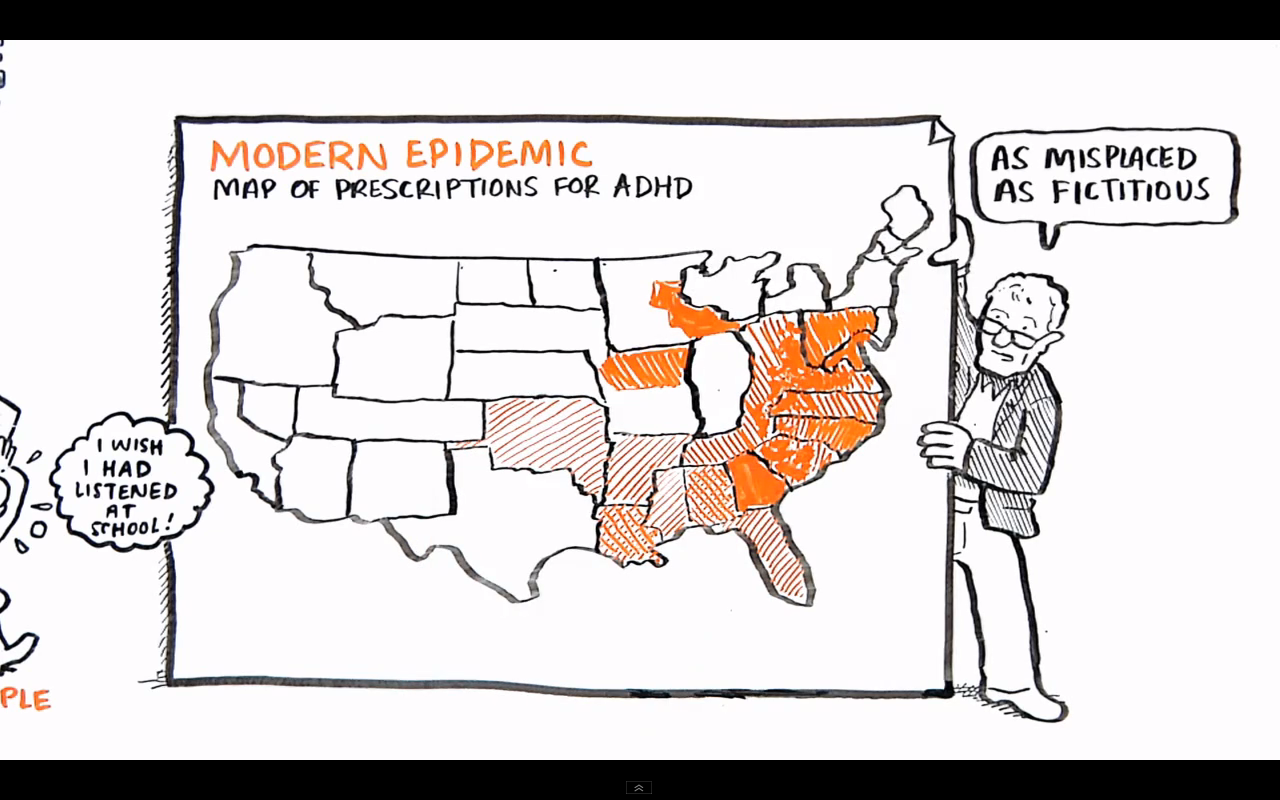 MODERN EPIDEMIC
MAP OF PRESCRIPTIONS FOR ADHD
AS MISPLACED
AS FICTITIOUS
I WISH
I HAD
LISTENED
AT
SCHOOL!
PLE